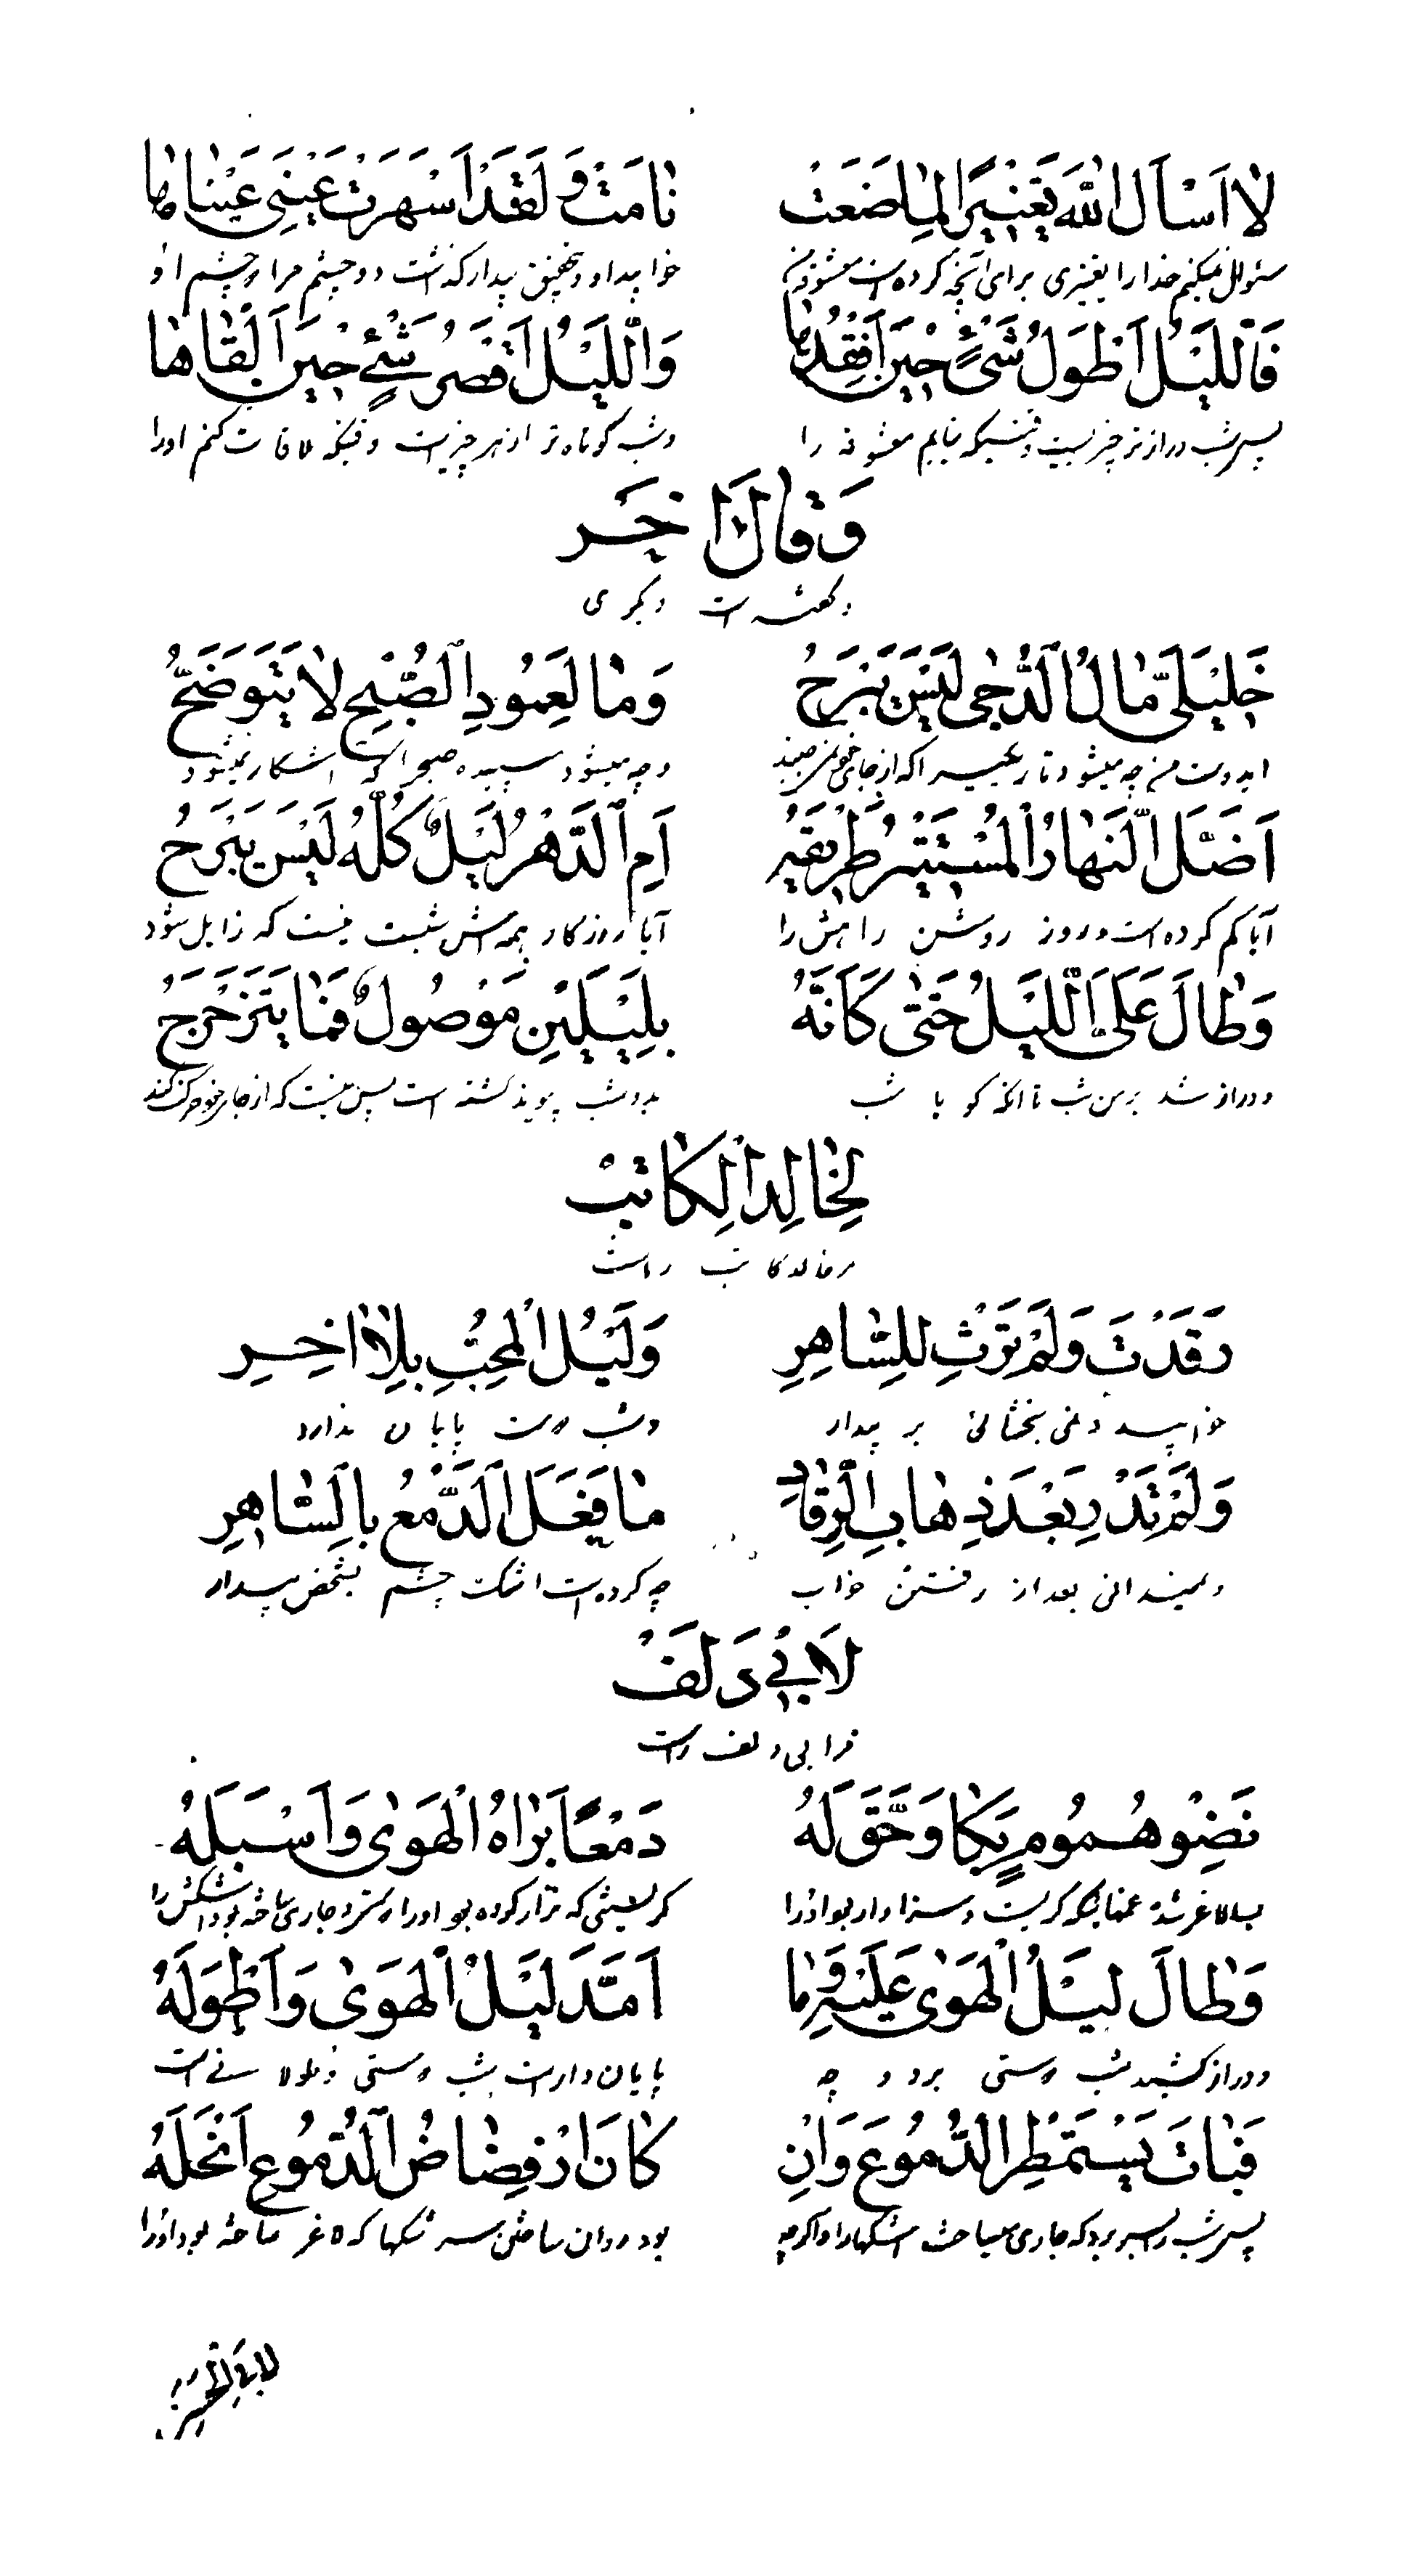 لا اَسْاَلُ اللهَ تَغْيِيرًا لِمٰا صَنَعَتْ نٰامَتْ وَ لَقَدْ اَسْهَرَتْ عَيْنِي عَيْنٰاهٰا
سئوال نمیکنم خدا را تغییری برای آنچه کرده است معشوقه من خوابیداو و بتحقیق بیدار گذاشت دو چشم مرا دو چشم او
فَالْلَيْلُ اَطْوَلُ شَيْءٍ حِيْنَ اَفْقِدُهٰا وَالْلَيْلُ اَقْصَرُ شَيْءٍ حِيْنَ اَلْقٰاهٰا
پس شب درازتر چیزیست وقتیکه نیابم معشوقه را وشب کوتاه تر از هر چیزیست وقتیکه ملاقات کنم اورا
وَقٰالَ اٰخَر
وگفته است دیگری
خَلِيْلَيَّ مٰا لُ الدُّجٰى لَيْسَ يَبْرَحُ وَمٰا لِعَمُودِ الصُّبْحِ لاٰ يَتَوَضَّحُ
ایدوست من چه میشود تاریکی را که از جای خود نمیجنبد وچه میشود سپیده صبح را که اشکار نمیشود
اَضَلَّ الَنَهٰارُ الْمُسْتَنِيْرُ طَرِيقَهُ اَمِ الَدَّهْرُ لَيْلٌ كُلُّهُ لَيْسَ يَبْرَحُ
آیا گم کرده است روز روشن راهش را آیا روزگار همه اش شبست نیست که زایل شود
وَطٰالَ عَلَيَّ الْلَيْلُ حَتّٰى كَاَنَّهُ بِلَيْلَيْنِ مَوْصُولٌ فَمٰا يَتَزَحْزَحُ
ودراز شد بر من شب تا آنکه گویا شب بدوشب پیوند گشته است پس نیست که از جای خود حرکت کند
لِخٰالِدِ الْكٰاتِبْ
مر خالد کاتب راست
رَقَدْتَ وَلَمْ تَرْثِ لِلسّٰاهِرِ وَلَيْلُ الْمُحِبِّ بِلاٰ اٰخِرِ
خوابیدی ونمی بخشائی بر بیدار وشب دوست پایان ندارد
وَلَمْ تَدْرِ بَعْدَ ذِهٰابِ الْرُقٰادِ مٰا فَعَلَ الَدَّمْعُ بِالسّٰاهِرِ
ونمیدانی بعد از رفتن خواب چه کرده است اشک چشم بشخص بیدار
لاَبي دُلَفْ
مر ابی دلف راست
نَضِوُ هُمُومٍ بَكٰا وَحُقَّ لَهُ دَمْعًا بَرٰاهُ الْهَوٰى وَاَسْبَلَهُ
وَطٰالَ لَيْلُ الْهَوٰى عَلَيْهِ وَمٰا اَمَدَّ لَيْلُ الْهَوٰى وَاَطْوَلَهُ
ودراز کشید شب دوستی برد و چه پایان دار است شب دوستی و طولانی است
فَبٰاتَ يَسْتَمْطِرُ الدُّمُوعَ وَاِنْ كٰانَ ارْفِضٰاضُ الَدُّمُوعِ اَنْحَلَهُ
لابي الحسن